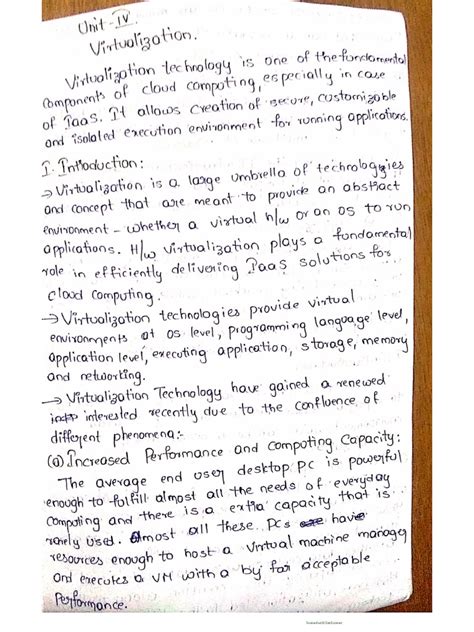 Unit-IV
Virtualization.
Virtualization technology is one of the fundamental
components of cloud computing, especially in case
of IaaS. It allows creation of secure, customizable
and isolated execution environment for running applications.
I. Introduction:
→ Virtualization is a large umbrella of technologies
and concept that are meant to provide an abstract
environment - whether a virtual h/w or an OS to run
applications. H/w virtualization plays a fundamental
role in efficiently delivering IaaS solutions for
cloud computing.
→ Virtualization technologies provide virtual
environments at OS level, programming language level,
application level, executing application, storage, memory
and networking.
→ Virtualization Technology have gained a renewed
interested recently due to the confluence of
different phenomena:-
(a) Increased Performance and computing Capacity:
The average end user desktop PC is powerful
enough to fulfill almost all the needs of everyday
computing and there is a extra capacity that is
rarely used. Almost all these PCs have
resources enough to host a Virtual machine manager
and executes a VM with a by far acceptable
Performance.